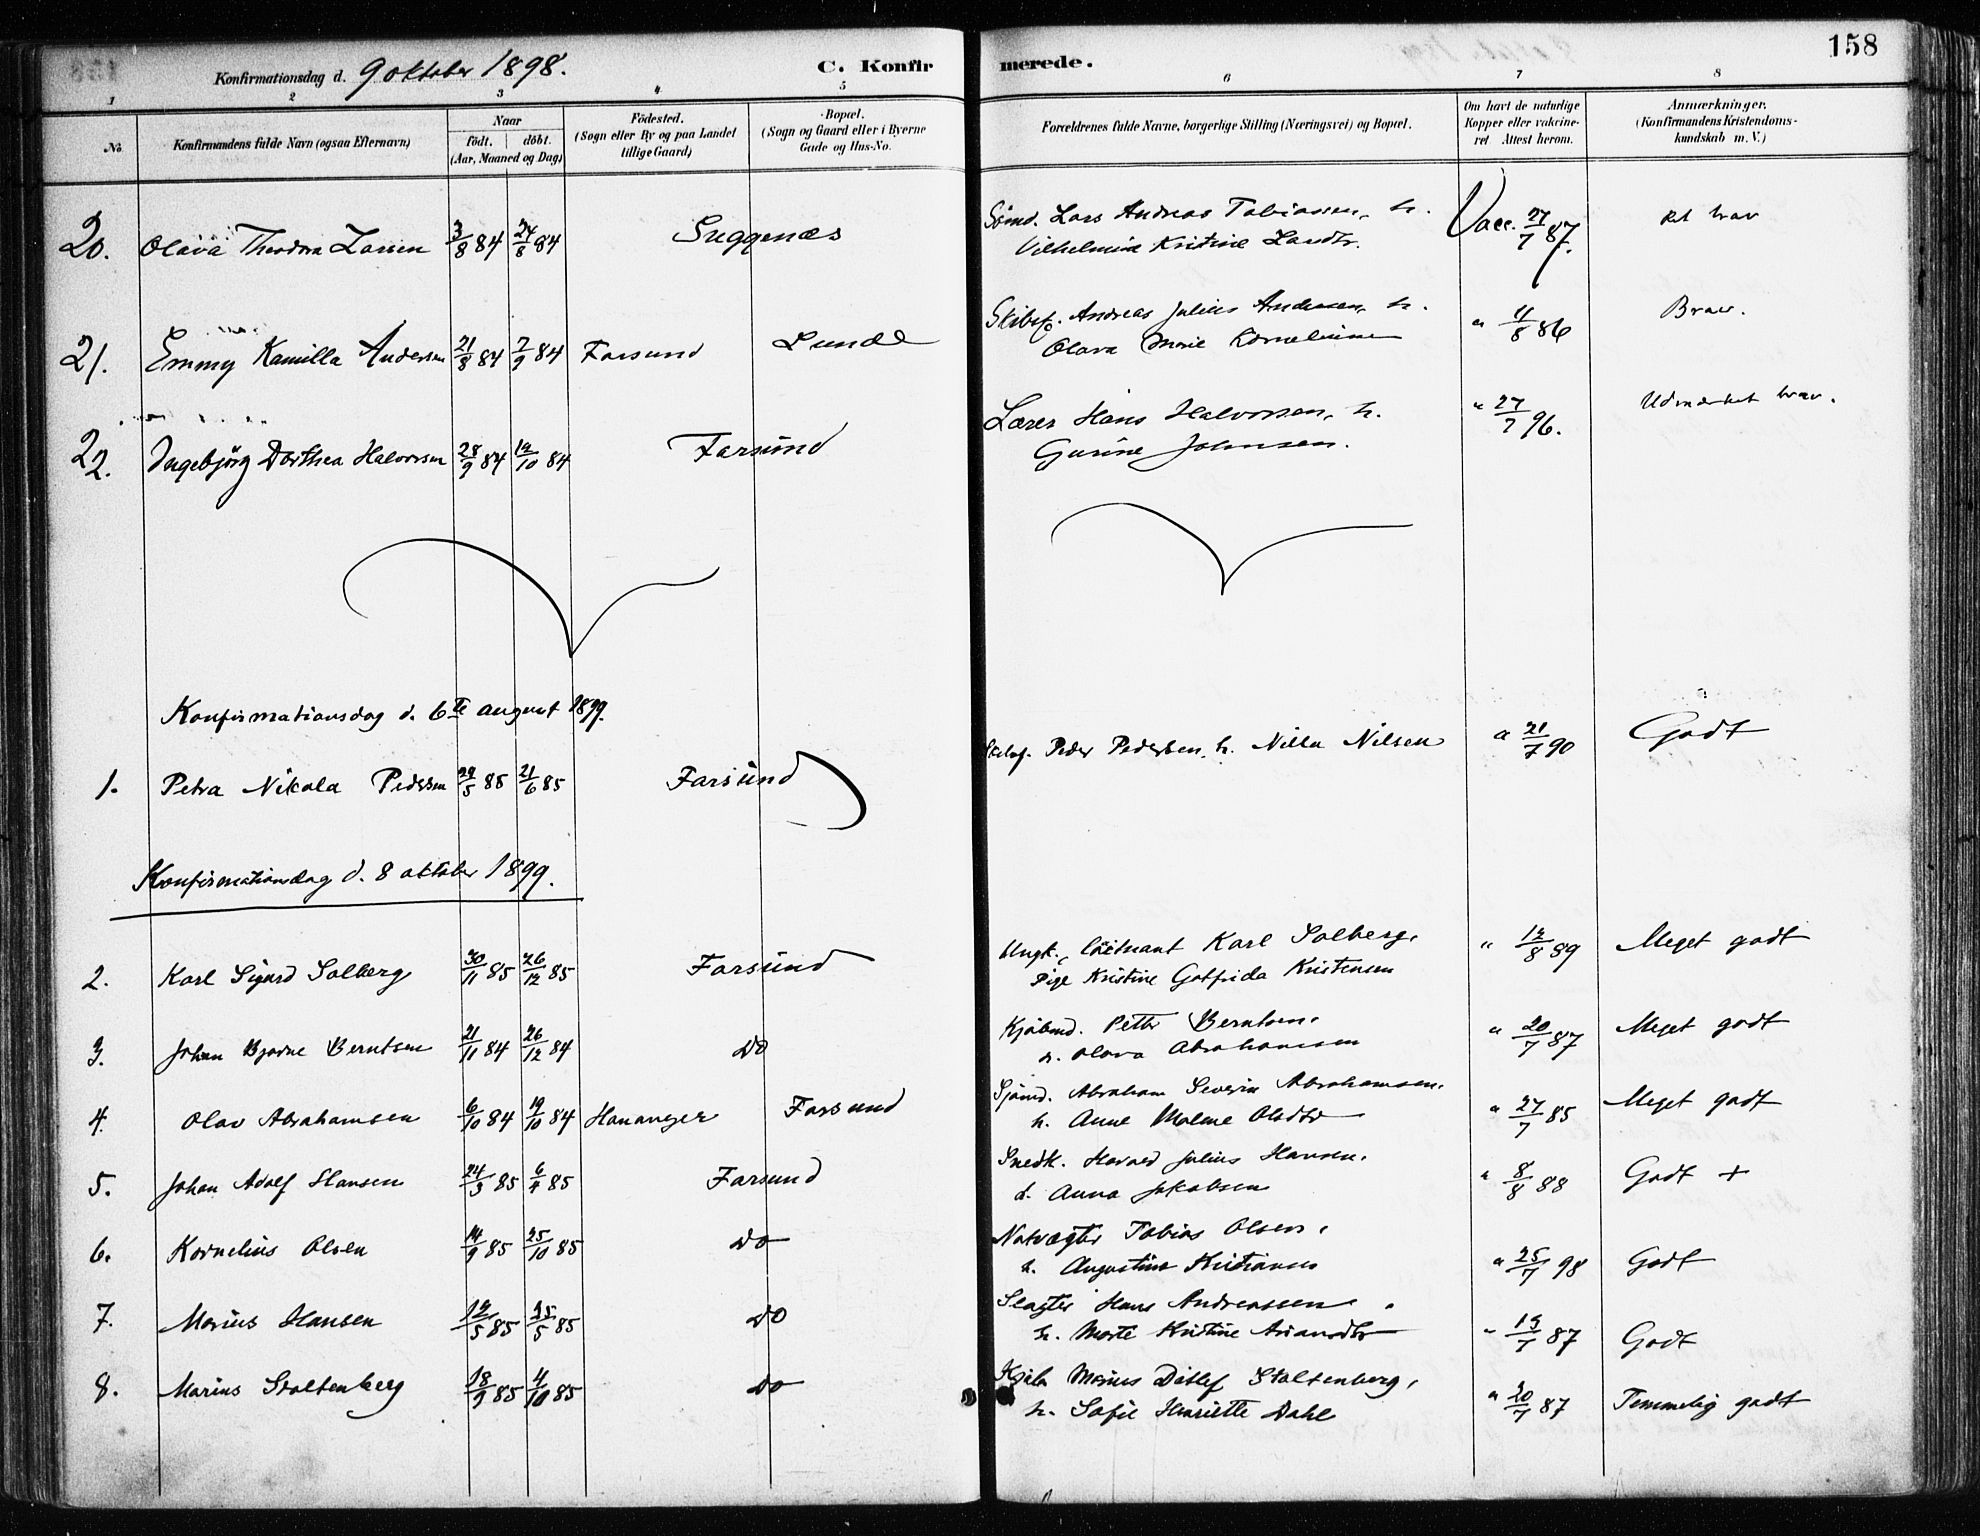 158
Konfirmationsdag d. 9 oktober 1898. C. Konfirmerede.
1 2 3 4 5 6 7 8
No. Konfirmandens fulde Navn (ogsaa Efternavn) Naar født. døbt. (Aar, Maaned og Dag) Fødested. (Sogn eller By og paa Landet tillige Gaard) Bopæl. (Sogn og Gaard eller i Byerne Gade og Hus-No. Forældrenes fulde Navne, borgerlige Stilling (Næringsvei) og Bopæl. Om havt de naturlige Kopper eller vakcineret Attest herom. Anmærkninger. (Konfirmandens Kristendomskundskab m. V.)
20. Olava Theodora Larsen 3/8 84 24/8 84 Suggenæs Sømd. Lars Andreas Tobiassen, h. Vacc. 27/7 87.
Vilhelmine Kristine Larsdtr.
21. Emmy Kamilla Andersen 21/8 84 7/9 84 Farsund Lunde Skibsf. Andreas Julius Andersen, h. " 11/8 86 Brav.
Olava Marie Korneliussen
22. Ingebjörg Dorthea Halvorsen 28/9 84 19/10 84 Farsund Lærer Hans Halvorsen, h. " 27/7 96. Udmærket brav.
Gurine Johnsen.
Konfirmationsdag d. 6te august 1899.
1. Petra Nikola Pedersen 29/5 85 21/6 85 Farsund Peder Pedersen, h. Nilla Nilsen " 21/7 90 Godt
Konfirmationsdag d. 8 oktober 1899.
2. Karl Sigurd Solberg 30/11 85 26/12 85 Farsund Ungk., Karl Solberg, " 12/8 89 Meget godt
Pige Kristine Gotfrida Kristensen
3. Johan Bjarne Berntsen 21/11 84 26/12 84 Do Kjøbmd. Petter Berntsen, " 20/7 87 Meget godt
h. Olava Abrahamsen
4. Olav Abrahamsen 6/10 84 19/10 84 Hananger Farsund Sjømd. Abraham Severin Abrahamsen, " 27/7 85 Meget godt
h. Anne Malene Olsdtr
5. Johan Adolf Hansen 24/3 85 6/4 85 Farsund Snedk. Harald Julius Hansen, " 8/8 88 Godt +
Anna Jakobsen
6. Kornelius Olsen 14/9 85 25/10 85 Do Natvægter Tobias Olsen, " 25/7 98 Godt
h. Augustine Kristiansen
7. Marius Hansen 12/5 85 25/5 85 Do Slagter Hans Andreassen, " 19/7 87 Godt
h. Marte Kristine
8. Marius Stoltenberg 18/9 85 4/10 85 Do Kjøb Marius Ditlef Stoltenberg, " 20/7 87 Temmelig godt
h. Sofie Henriette Dahl